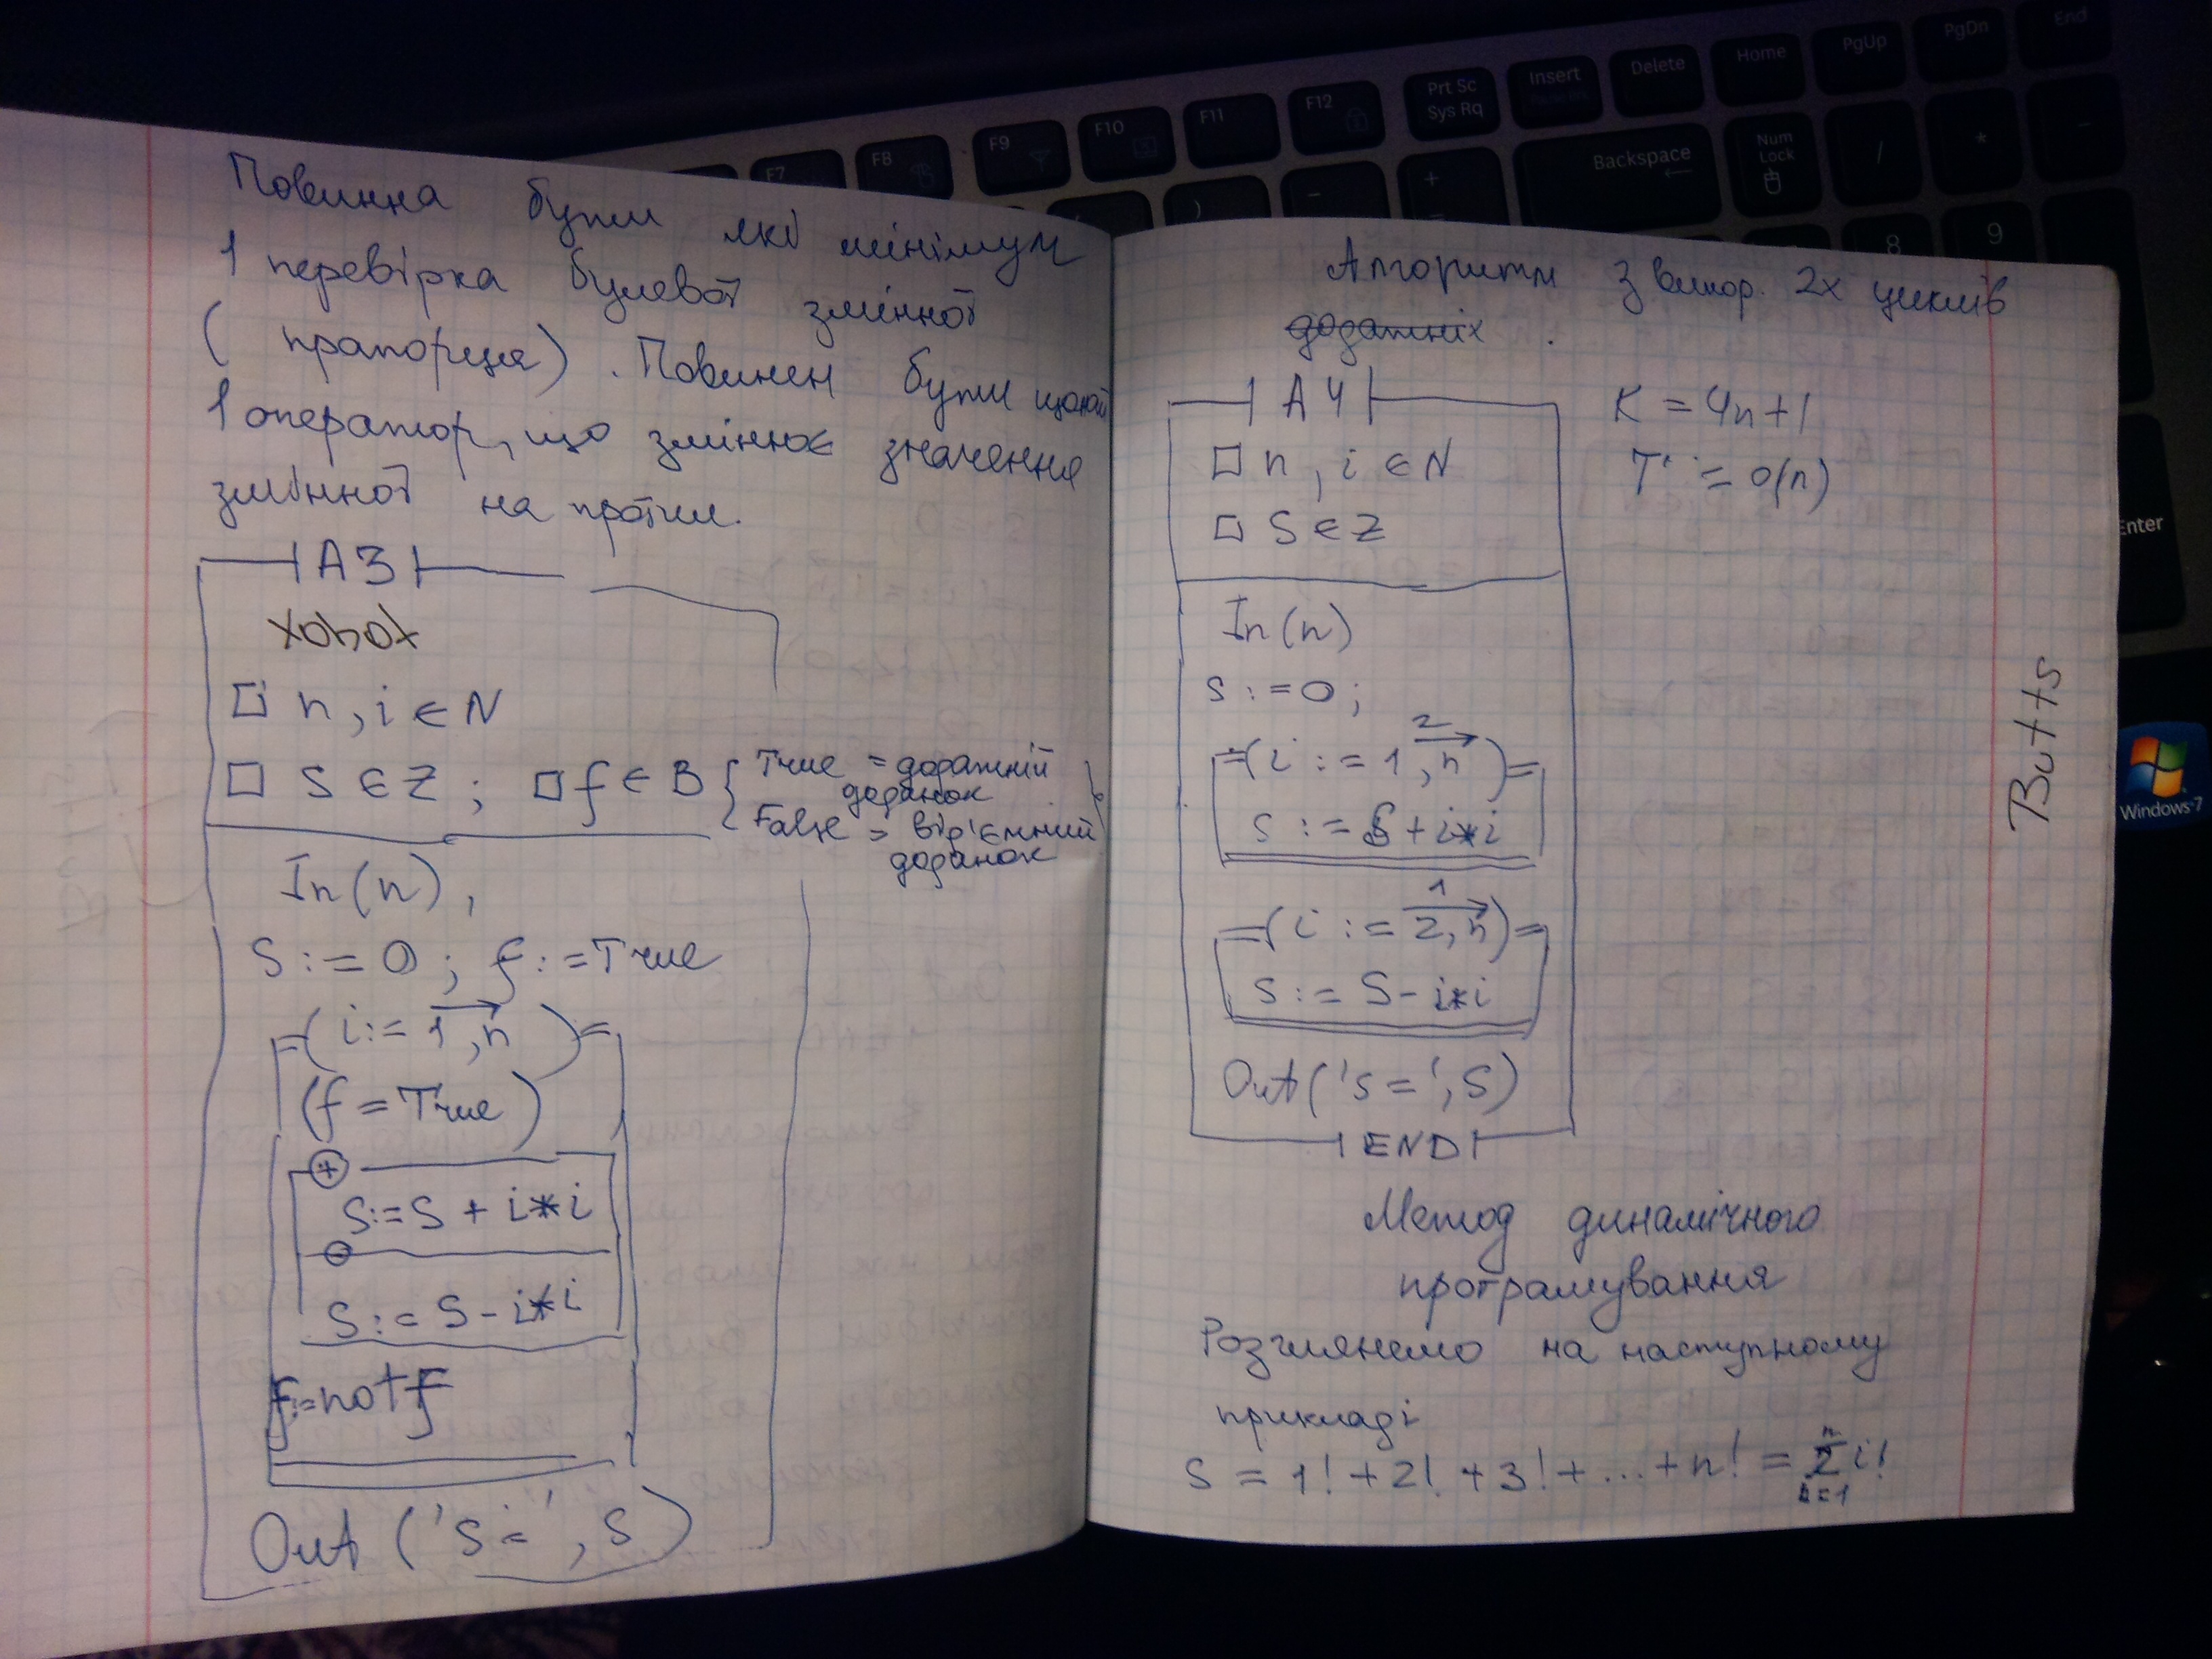 Повинна бути які мінімум
1 перевірка булевої змінної
( прапорця) . Повинен бути
1 оператор, що змінює значення
змінної на протил.
A3
хонох
□ n, i ∈ N
□ S ∈ Z ; □ f ∈ B { True = додатній
доданок
False = від'ємний }
доданок
In(n),
S := 0 ; f := True
=( i := 1, n )=
(f = True)
+
S:=S + i*i
-
S := S - i*i
f:=not f
Out ('S=', S)
Алгоритм з викор. 2х циклів
додатніх .
A4
K = 4n+1
□ n, i ∈ N
T = O(n)
□ S ∈ Z
In(n)
S := 0 ;
2
=( i := 1, n )=
S := S + i*i
1
=( i := 2, n )=
S := S - i*i
Out('S=', S)
END
Метод динамічного
програмування
Розглянемо на наступному
прикладі
S = 1! + 2! + 3! + ... + n! = Σ i!
n
i=1
Butts
F7
F8
F9
F10
F11
F12
Prt Sc
Sys Rq
Insert
Delete
Home
PgUp
PgDn
End
Backspace
Num
Lock
/
*
-
+
=
-
)
8
9
Enter
Windows 7